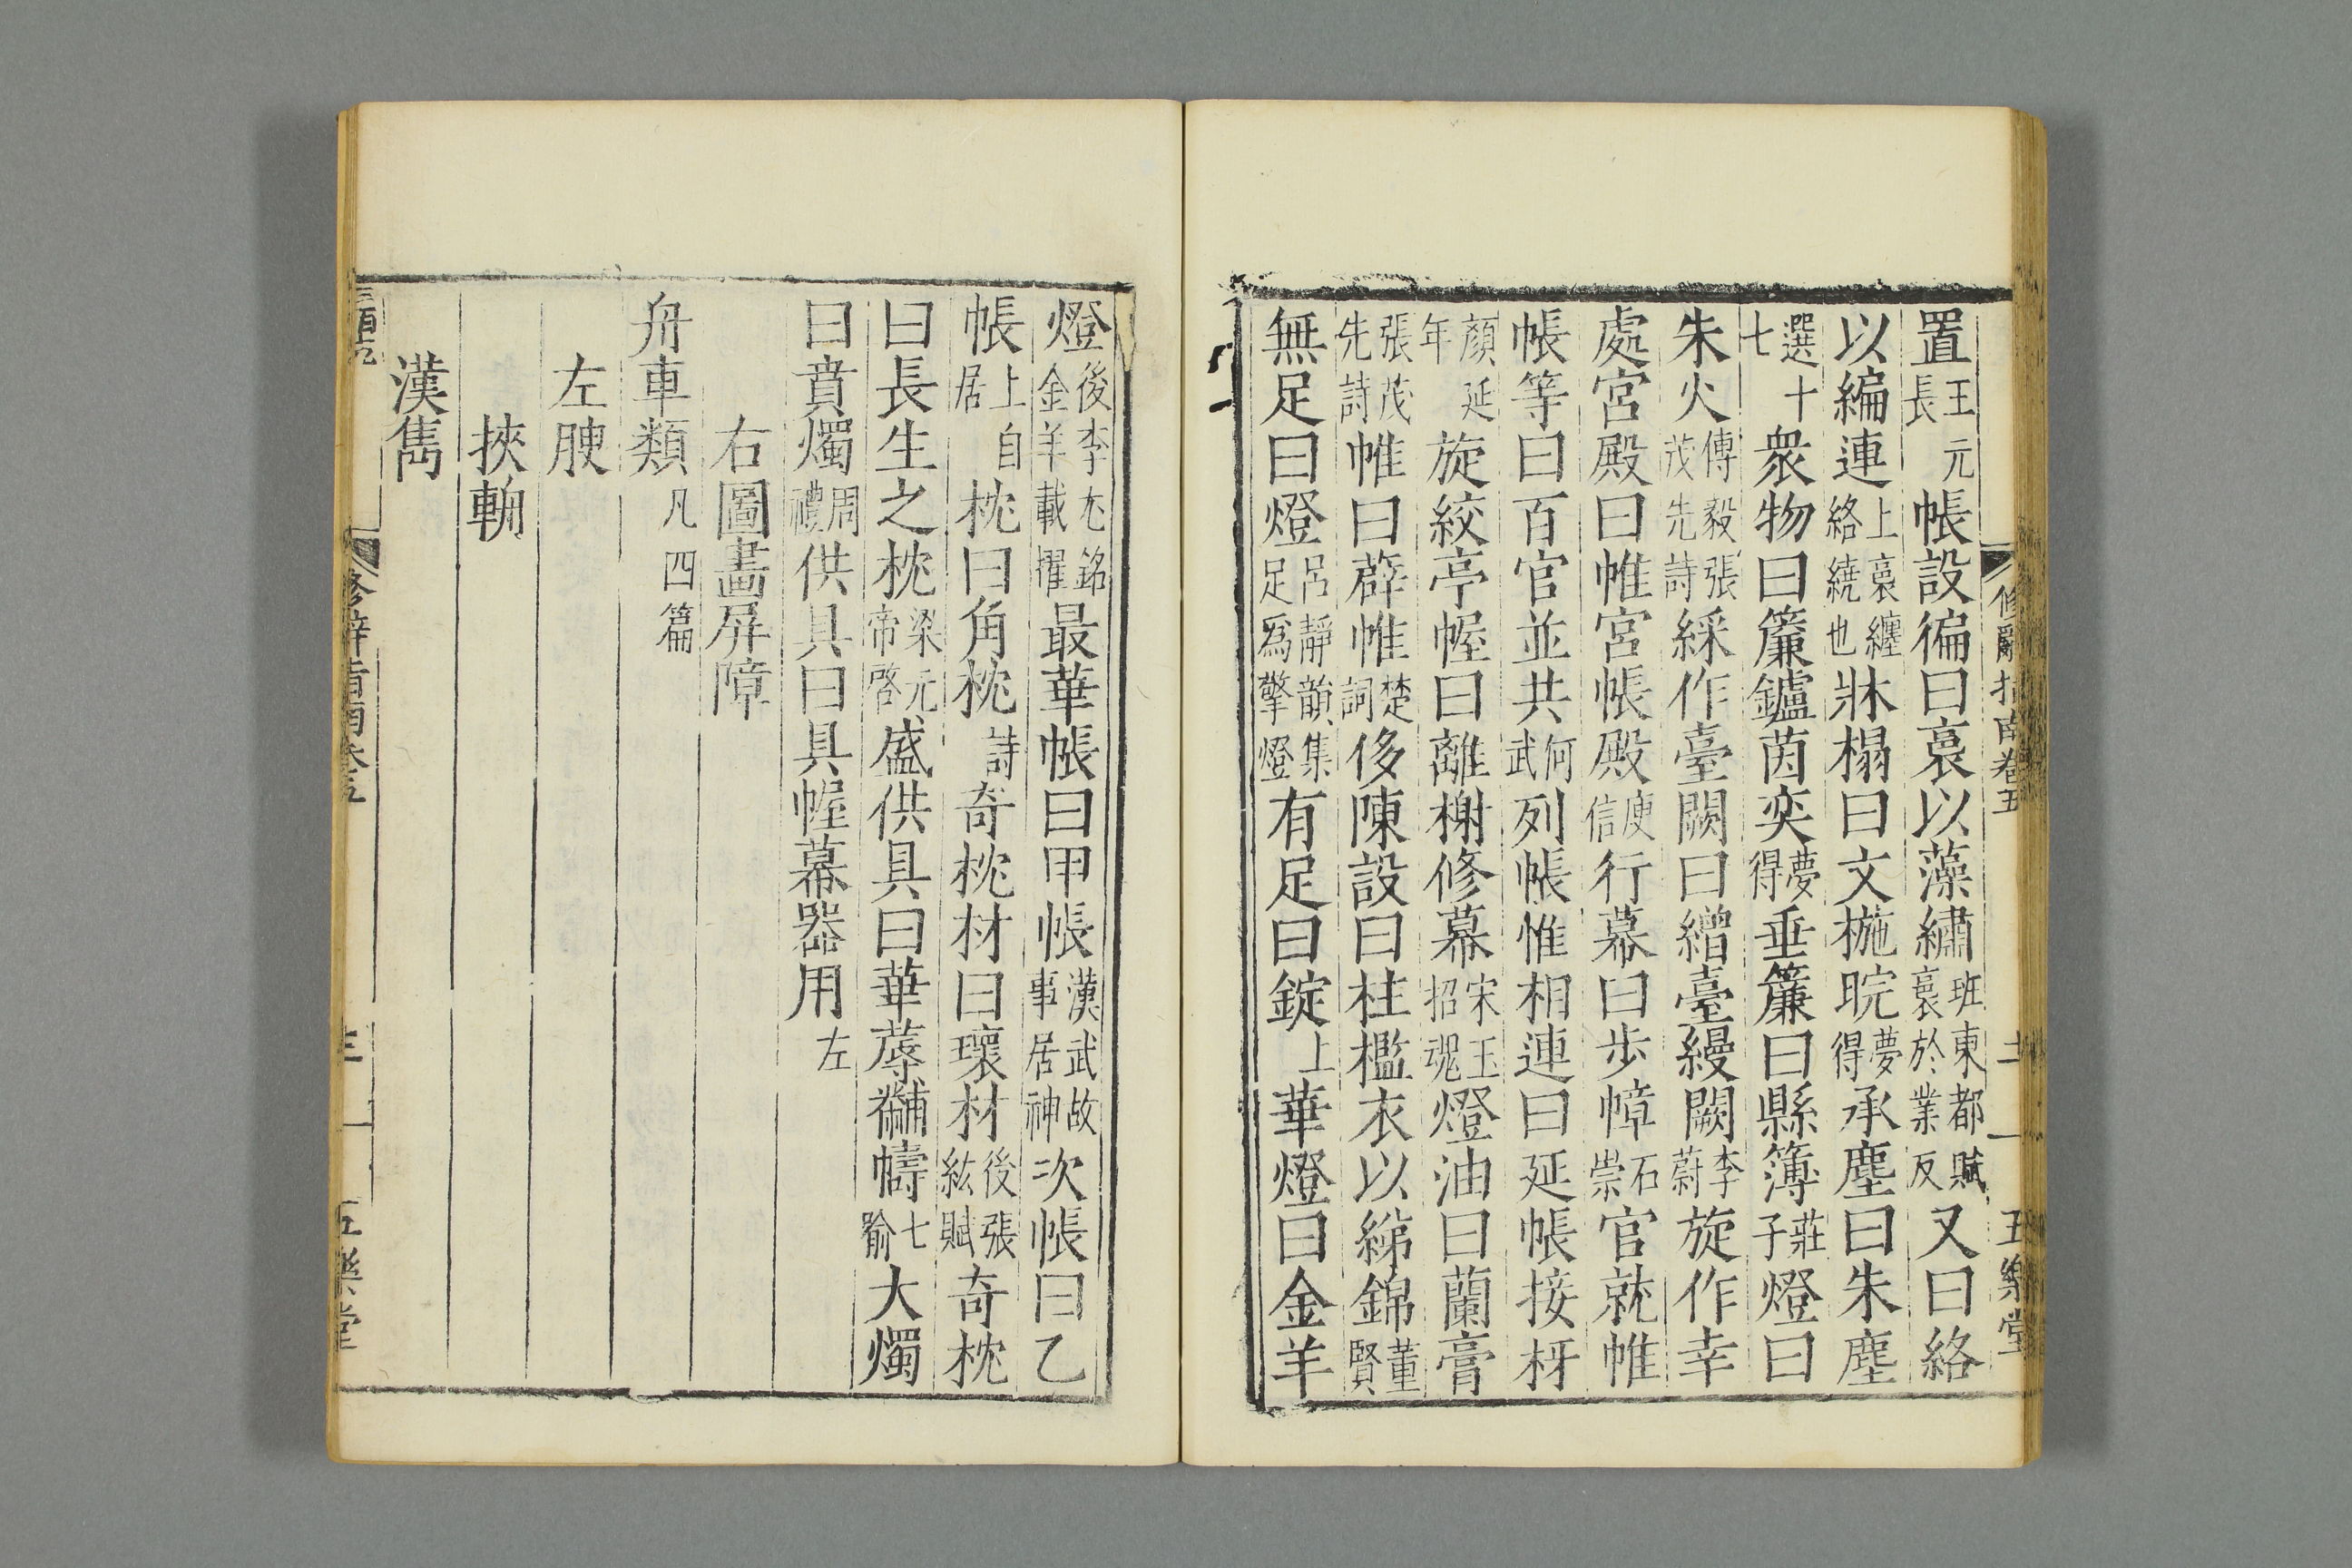 置王元長帳設徧曰裛以藻繡班東都賦裛於業反又曰絡
以編連上裛纏絡繞也牀榻曰文㭟晥夢得承塵曰朱塵
選十七衆物曰簾鑪茵奕夢得垂簾曰縣簿莊子燈曰
朱火傅毅張茂先詩綵作臺闕曰繒臺縵闕李蔚旋作幸
處宮殿曰帷宮帳殿庾信行幕曰步幛石崇官就帷
帳等曰百官並共何武列帳惟相連曰延帳接枅
顏延年旋絞亭幄曰離榭修幕宋玉招魂燈油曰蘭膏
張茂先詩帷曰薜帷楚詞侈陳設曰柱檻衣以綈錦董賢
無足曰燈呂靜韻集足爲擎燈有足曰錠上華燈曰金羊
修辭指南卷五 二 五樂堂
燈後李尤銘金羊載燿最華帳曰甲帳漢武故事居神次帳曰乙
帳上自居枕曰角枕詩奇枕材曰瓌材後張紘賦奇枕
曰長生之枕梁元帝啓盛供具曰華蓐黼幬七喻大燭
曰蕡燭周禮供具曰具幄幕器用左
右圖畫屏障
舟車類凡四篇
左腴
挾輈
漢雋
修辭指南卷五 三 五樂堂